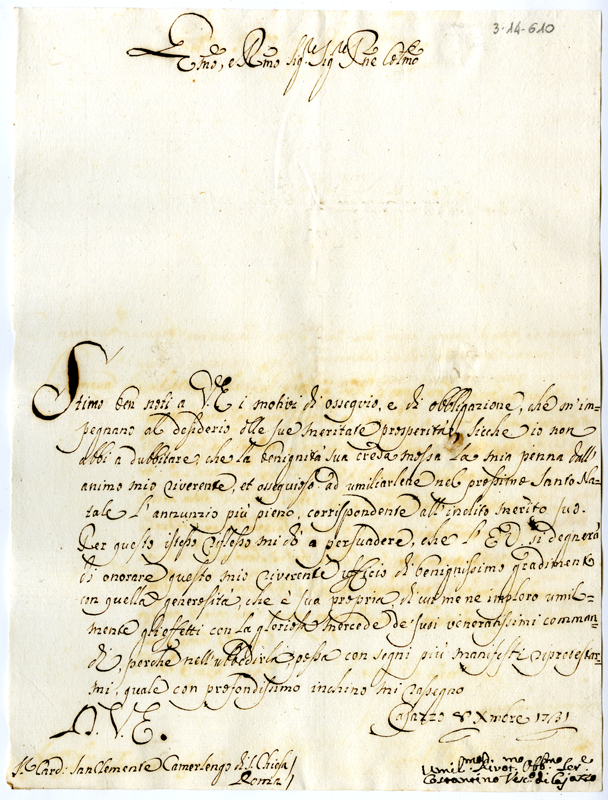 3-14-610
Emo, e Rmo Sigre Sigre Pne Colmo
Stimo ben noti a V.E. i motivi di ossequio, e di obbligazione, che m'im-
pegnano al desiderio delle sue meritate prosperità, sicche io non
abbi a dubbitare, che la benignità sua creda mossa la mia penna dall'
animo mio riverente, et ossequioso ad umiliarlene nel prossimo Santo Na-
tale l'annunzio più pieno, corrispondente all'inclito merito suo.
Per questo istesso riflesso mi dò a persuadere, che l'E.V. si degnerà
di onorare questo mio riverente ufficio di benignissimo gradimento
con quella generosità, che è sua propria, di cui mene imploro umil-
mente gli effetti con la gloriosa mercede de' suoi veneratissimi coman-
di, perche nell'ubbidirla, possa con segni più manifesti riprotestar-
mi, quale con profondissimo inchino mi rasegno
D.V.E.
Cajazzo 8 Xmbre 1731
Sr. Card: San Clemente Camerlengo di S. Chiesa
Roma
Umilmo Divotmo Obbmo Serre
Costantino Vesco di Cajazzo